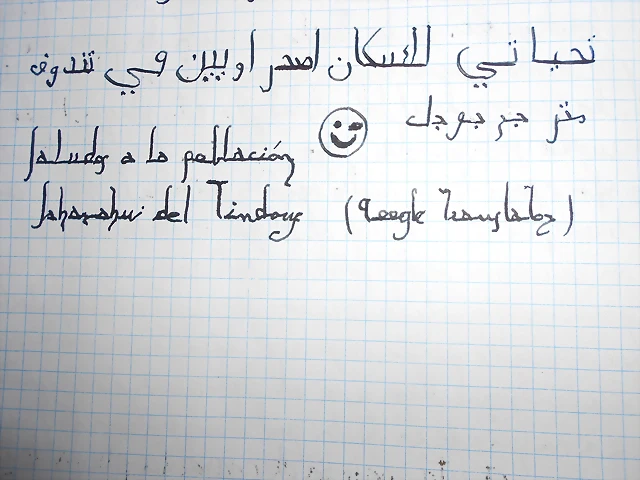 تحياتي للسكان اصحراويين في تندوف
مترجم جوجل
Saludos a la población
Saharahui del Tindouf (Google Translator)